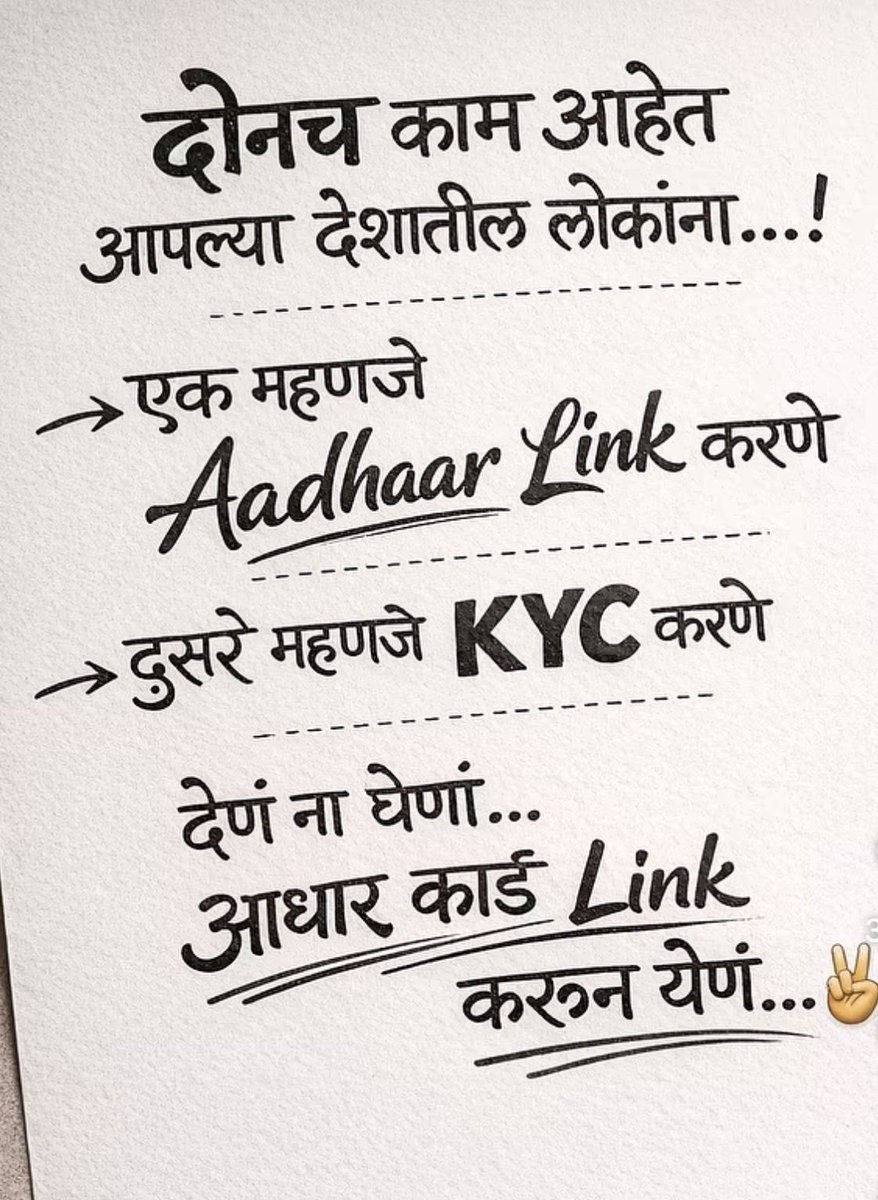 दोनच काम आहेत
आपल्या देशातील लोकांना...!
→ एक म्हणजे
Aadhaar Link करणे
→ दुसरे म्हणजे KYC करणे
देणं ना घेणं...
आधार कार्ड Link
करून येणं...✌️